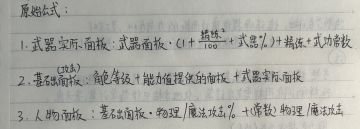 原始公式：
1. 武器实际面板：武器面板·(1+精炼²/100+武器%)+精炼+武功常数
(攻击)
2. 基础面板：角色等级+能力值提供的面板+武器实际面板
3. 人物面板：基础面板·物理/魔法攻击%+(常数)物理/魔法攻击